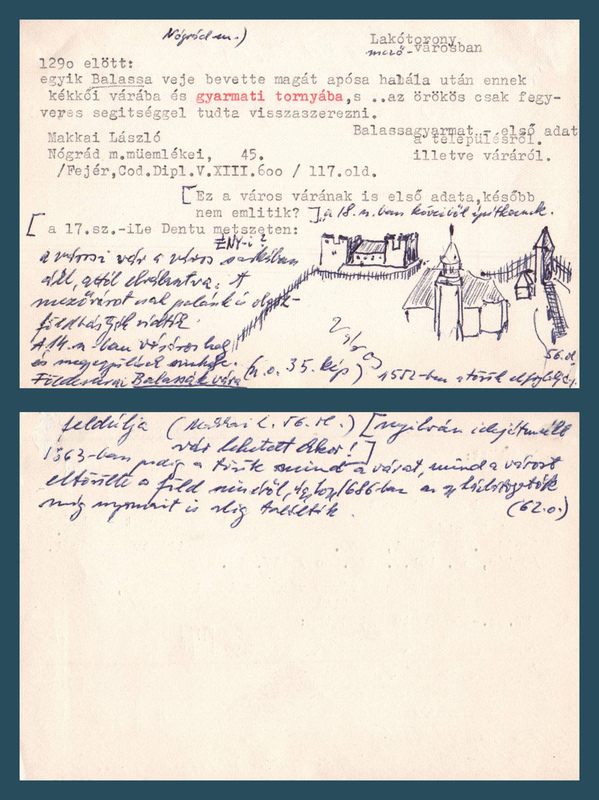 Nógrád m.)
Lakótorony
mező-városban
129o elött:
egyik Balassa veje bevette magát apósa halála után ennek
kékkői várába és gyarmati tornyába,s ..az örökös csak fegy-
veres segitséggel tudta visszaszerezni.
Balassagyarmat - első adat
a településről.
illetve váráról.
Makkai László
Nógrád m.müemlékei, 45.
/Fejér,Cod.Dipl.V.XIII.6oo / 117.old.
[Ez a város várának is első adata,később
nem emlitik? ] a 18. sz.ban köveiből építkeznek.
[ a 17.sz.-iLe Dentu metszeten:
ÉNY-i ?
a városi vár a város sarkában
áll, attól elválasztva. A
mezővárost csak palánk és
földbástyák védték.
A 14. sz.-ban városias hely
és megerősített
Földesurai Balassák vára
(i. o. 35. kép) 1552-ben a török elfoglalja,
56. ol
feldúlja (Makkai L. 56. ol.) [nyilván idejétmúlt
vár lehetett akkor!]
1663-ban pedig a török mind a várat, mind a várost
eltörölte a föld színéről, úgy hogy 1686-ban az új
még nyomait is alig találták.
(62.o.)